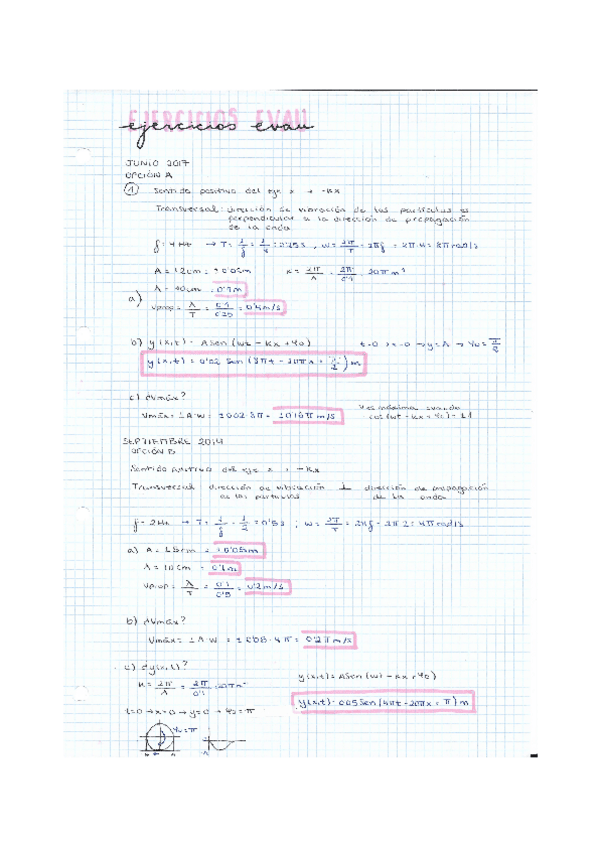 EJERCICIOS EVAU
ejercicios evau
JUNIO 2017
OPCIÓN A
① Sentido positivo del eje x → -Kx
Transversal: dirección de vibración de las partículas es
perpendicular a la dirección de propagación
de la onda
f = 4 Hz → T = 1/f = 1/4 = 0'25 s , ω = 2π/T = 2πf = 2π·4 = 8π rad/s
K = 2π/λ
a)
Vprop = λ/T = = 0'4 m/s
b) y(x,t) = A sen (ωt - Kx + φo) t=0 x=0 → y=A → φo = π/2
y(x,t) = 0'02 sen (8πt - 20πx + π/2) m
c) ¿Vmáx?
Vmáx = ±A·ω = ±0'02·8π = ±0'16π m/s
V es máxima cuando
cos(ωt - Kx + φo) = ±1
SEPTIEMBRE 2014
OPCIÓN B
Sentido positivo del eje x : -Kx
Transversal dirección de vibración ⊥ dirección de propagación
de las partículas de la onda
f = 2 Hz → T = 1/f = 1/2 = 0'5 s ; ω = 2π/T = 2πf = 2π·2 = 4π rad/s
a) A =
λ = 10 cm = 0'1 m
Vprop = λ/T = 0'1/0'5 = 0'2 m/s
b) ¿Vmáx?
Vmáx = ±A·ω = = 0'2π m/s
c) ¿y(x,t)?
y(x,t) = A sen (ωt - Kx + φo)
K = 2π/λ = 2π/0'1 = 20π m⁻¹
y(x,t) = 0'05 sen (4πt - 20πx + π) m
t=0 → x=0 → y=0 → φo = π
φo = π